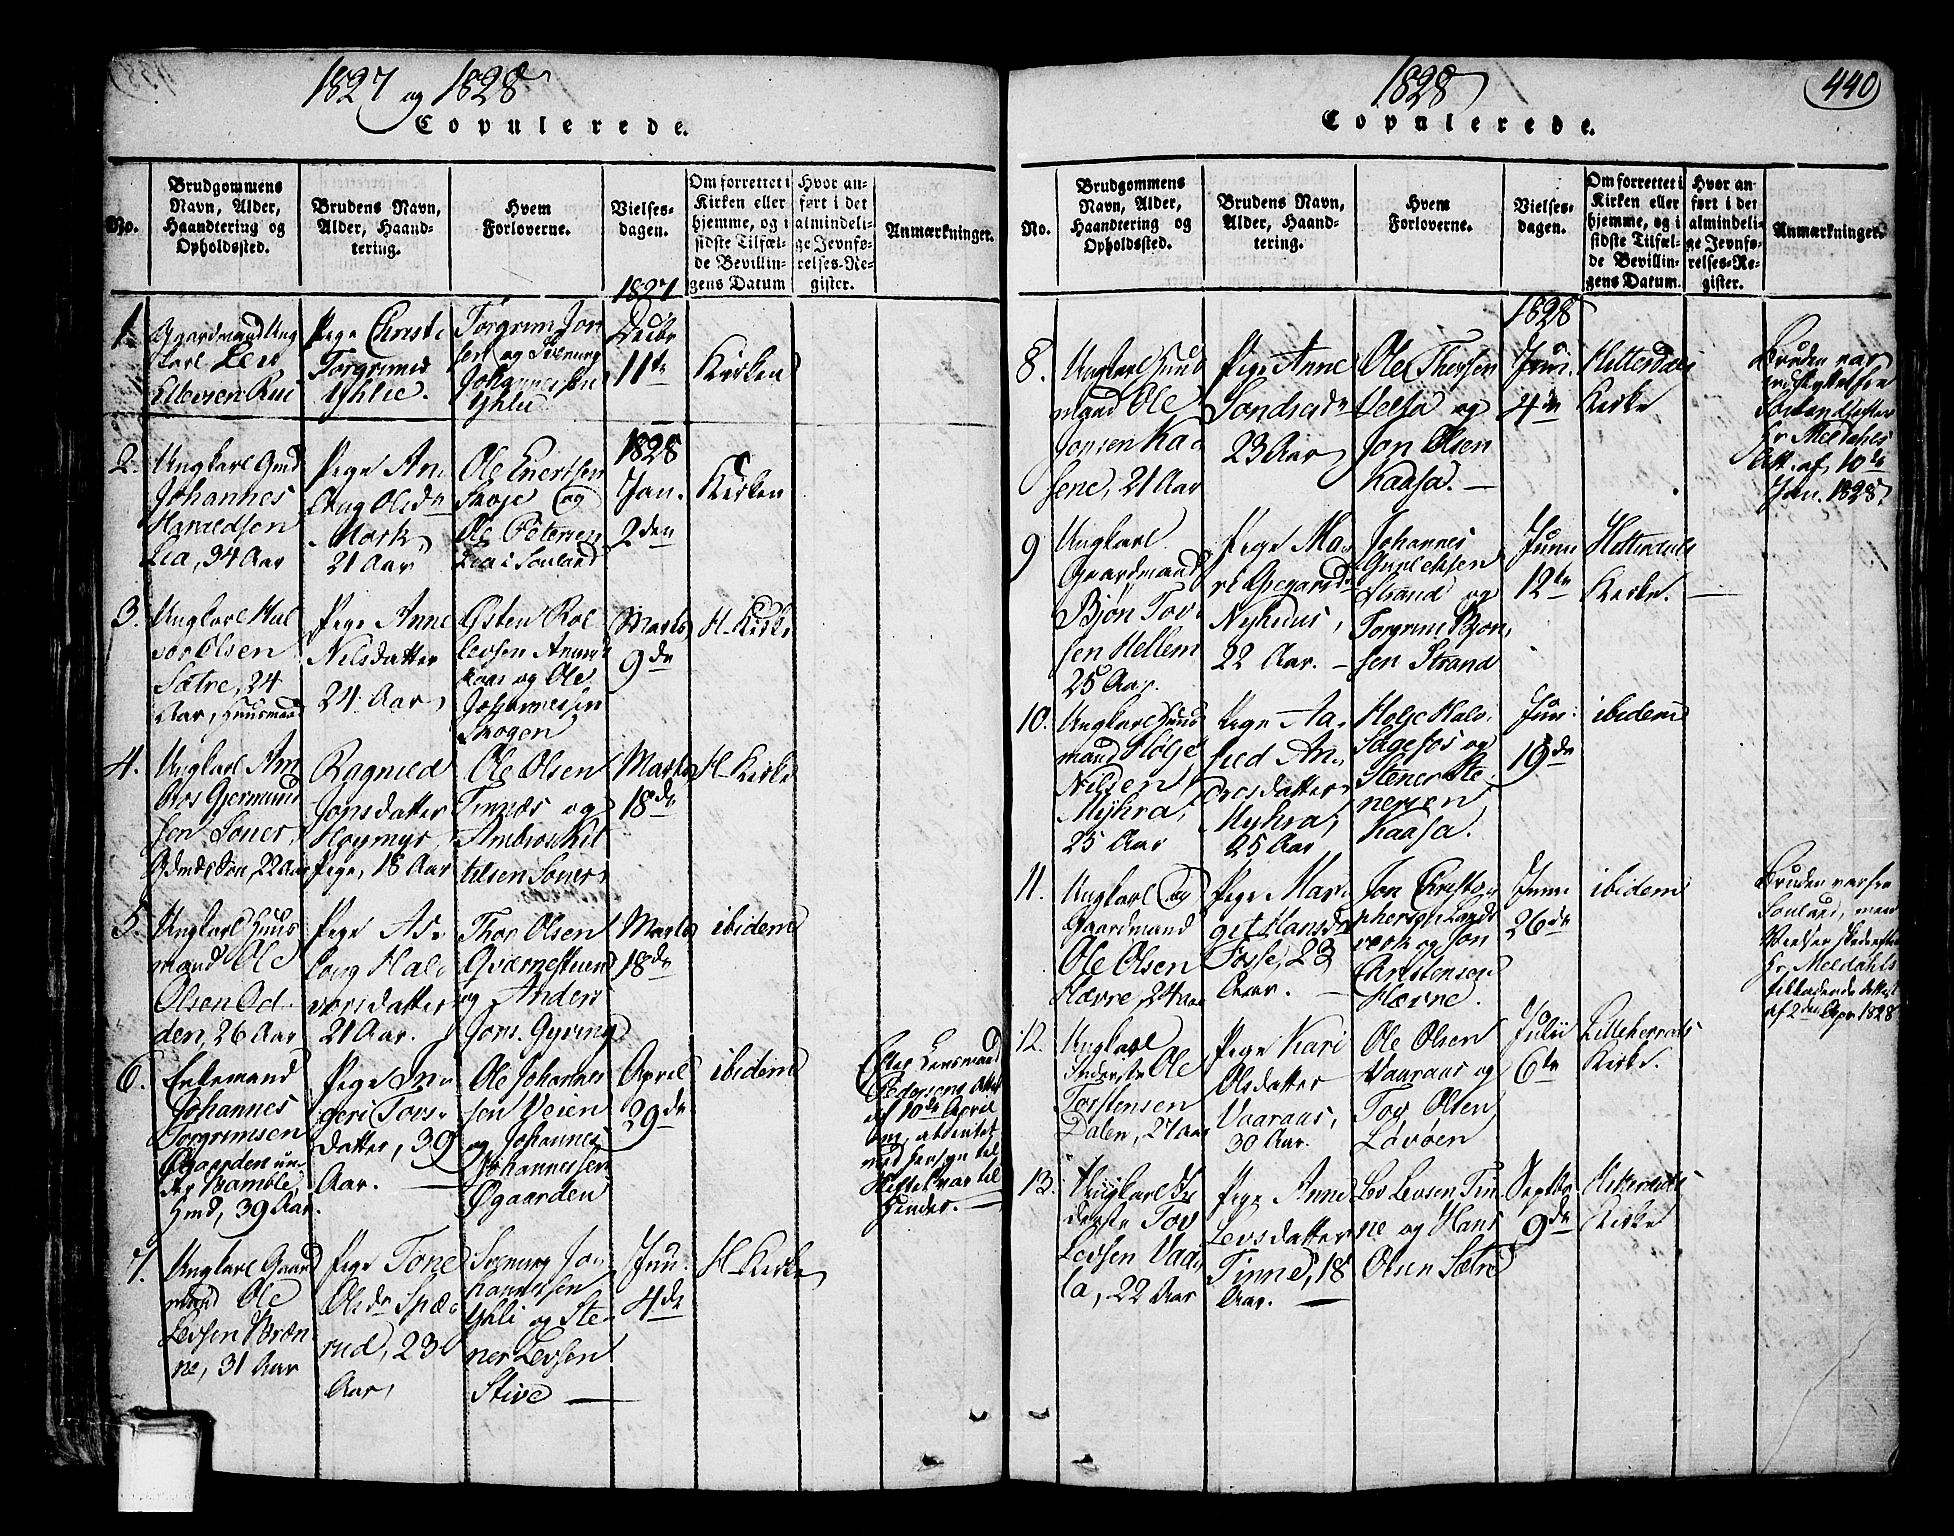 1827 og 1828
Copulerede.
No.
Brudgommens
Navn, Alder,
Haandtering og
Opholdssted.
Brudens Navn,
Alder, Haand-
tering.
Hvem
Forloverne.
Vielses-
dagen.
Om forrettet i
Kirken eller
hjemme, og i
sidste Tilfæl-
de Bevillin-
gens Datum
Hvor an-
ført i det
almindeli-
ge Jevnfø-
relses-Re-
gister.
Anmærkninger.
1.
Gaardmand Ung
karl Leiv
Pige Christi
Torgrims
Yhlie.
Torgrim Jon
sen og
Johannessen
Yhlie
1827
Decbr
11te
Kirken
2.
Ungkarl Gmd
Johannes
Haraldsen
Lia, 34 Aar
Pige An
Aug Olsdr
Mork
21 Aar
Ole Enertsen
og
Ole Petersen
Lia i Souland
1828
Jan.
2den
Kirken
3.
Ungkarl Hal
vor Olsen
Sætre, 24
Aar, Huusmand
Pige Anne
Nilsdatter
24 Aar
Østen Rol
levsen
og Ole
Johannessen
Skogen
Marts
9de
H. Kirke
4.
Ungkarl Am
bros Germund
sen Soner,
22 Aar
Ragnild
Jonsdatter
Høymyr
Pige, 18 Aar
Ole Olsen
Tinnæs og
Ambros Kit
telsen Soner
Marts
18de
H. Kirke
5.
Ungkarl Huus
mand Ole
Olsen Od
den, 26 Aar
Pige As-
loug Hal-
vorsdatter
21 Aar.
Thor Olsen
Qværnestuen
og Anders
Jons. Gyving
Marts
18de
ibidem
6.
Enkemand
Johannes
Torgrimsen
Øgaarden un-
der Bamble,
Hmd, 39 Aar.
Pige In-
geri Tors-
datter, 39
Aar.
Ole Johannes
sen Veien
og Johannes
Johannessen
Øgaarden
April
29de
ibidem
Efter Lensmand
Pedersens Attest
af 10de April
med Hensyn til
Hinder.
7.
Ungkarl Gaard
mand Ole
Levsen Bræn
ne, 31 Aar
Pige Tone
Olsdr Spæ-
rud, 23
Aar,
Solmung Jo-
hannessen
Yhli og Ste-
ner Levsen
Stive
Jun.
4de
H. Kirke
1828
440
Copulerede.
No.
Brudgommens
Navn, Alder,
Haandtering og
Opholdssted.
Brudens Navn,
Alder, Haand-
tering.
Hvem
Forloverne.
Vielses-
dagen.
Om forrettet i
Kirken eller
hjemme, og i
sidste Tilfæl-
de Bevillin-
gens Datum.
Hvor an-
ført i det
almindeli-
ge Jevnfø-
relses-Re-
gister.
Anmærkninger.
8.
Ungkarl Huus
mand Ole
Jonsen Ka-
sene, 21 Aar
Pige Anne
Sondredr
23 Aar
Ole Thorsen
og
Jon Olsen
Kaasa.
1828
Jun.
4de
Hitterdals
Kirke
Bruden var
efter
Hr Meldahls
Att. af 10de
Jan. 1828.
9
Ungkarl
Gaardmand
Bjøn Tov-
sen Hellem
25 Aar.
Pige Ma-
ri Gregarsdr
Nyhuus,
22 Aar.
Johannes
Gunleiksen
Strand og
Torgrim Bjon
sen Strand
Juni
12te
Hitterdals
Kirke.
10.
Ungkarl Huus
mand Holje
Nilsen
Myhra,
25 Aar
Pige Aa-
sild An-
Myhra,
25 Aar
Holje Halv.
Sagefos og
Stener Ste-
nersen
Kaasa.
Jun.
19de
ibidem
11.
Ungkarl og
Gaardmand
Ole Olsen
Hærre, 24 Aar
Pige Mar-
git Hansdr
Fosse, 23
Aar.
Jon Christo-
phersen Lands
verk og Jon
Christensen
Juni
26de
ibidem
Bruden var fra
Souland, men
Vielsen skede efter
Hr Meldahls
af 2den Apr 1828
12.
Ungkarl
Inderste Ole
Torstensen
Dalen, 27 Aar
Pige Kari
Olsdatter
Vaaraas,
30 Aar.
Ole Olsen
Vaaraas og
Tov Olsen
Løvøen
Julii
6te
Lilleherreds
Kirke.
13.
Ungkarl In
derste Tov
Levsen Vaa-
la, 22 Aar
Pige Anne
Levsdatter
Tinne, 18
Aar.
Lev Levsen Tin
ne og Hans
Olsen Sætre
Septbr
9de
Hitterdals
Kirke